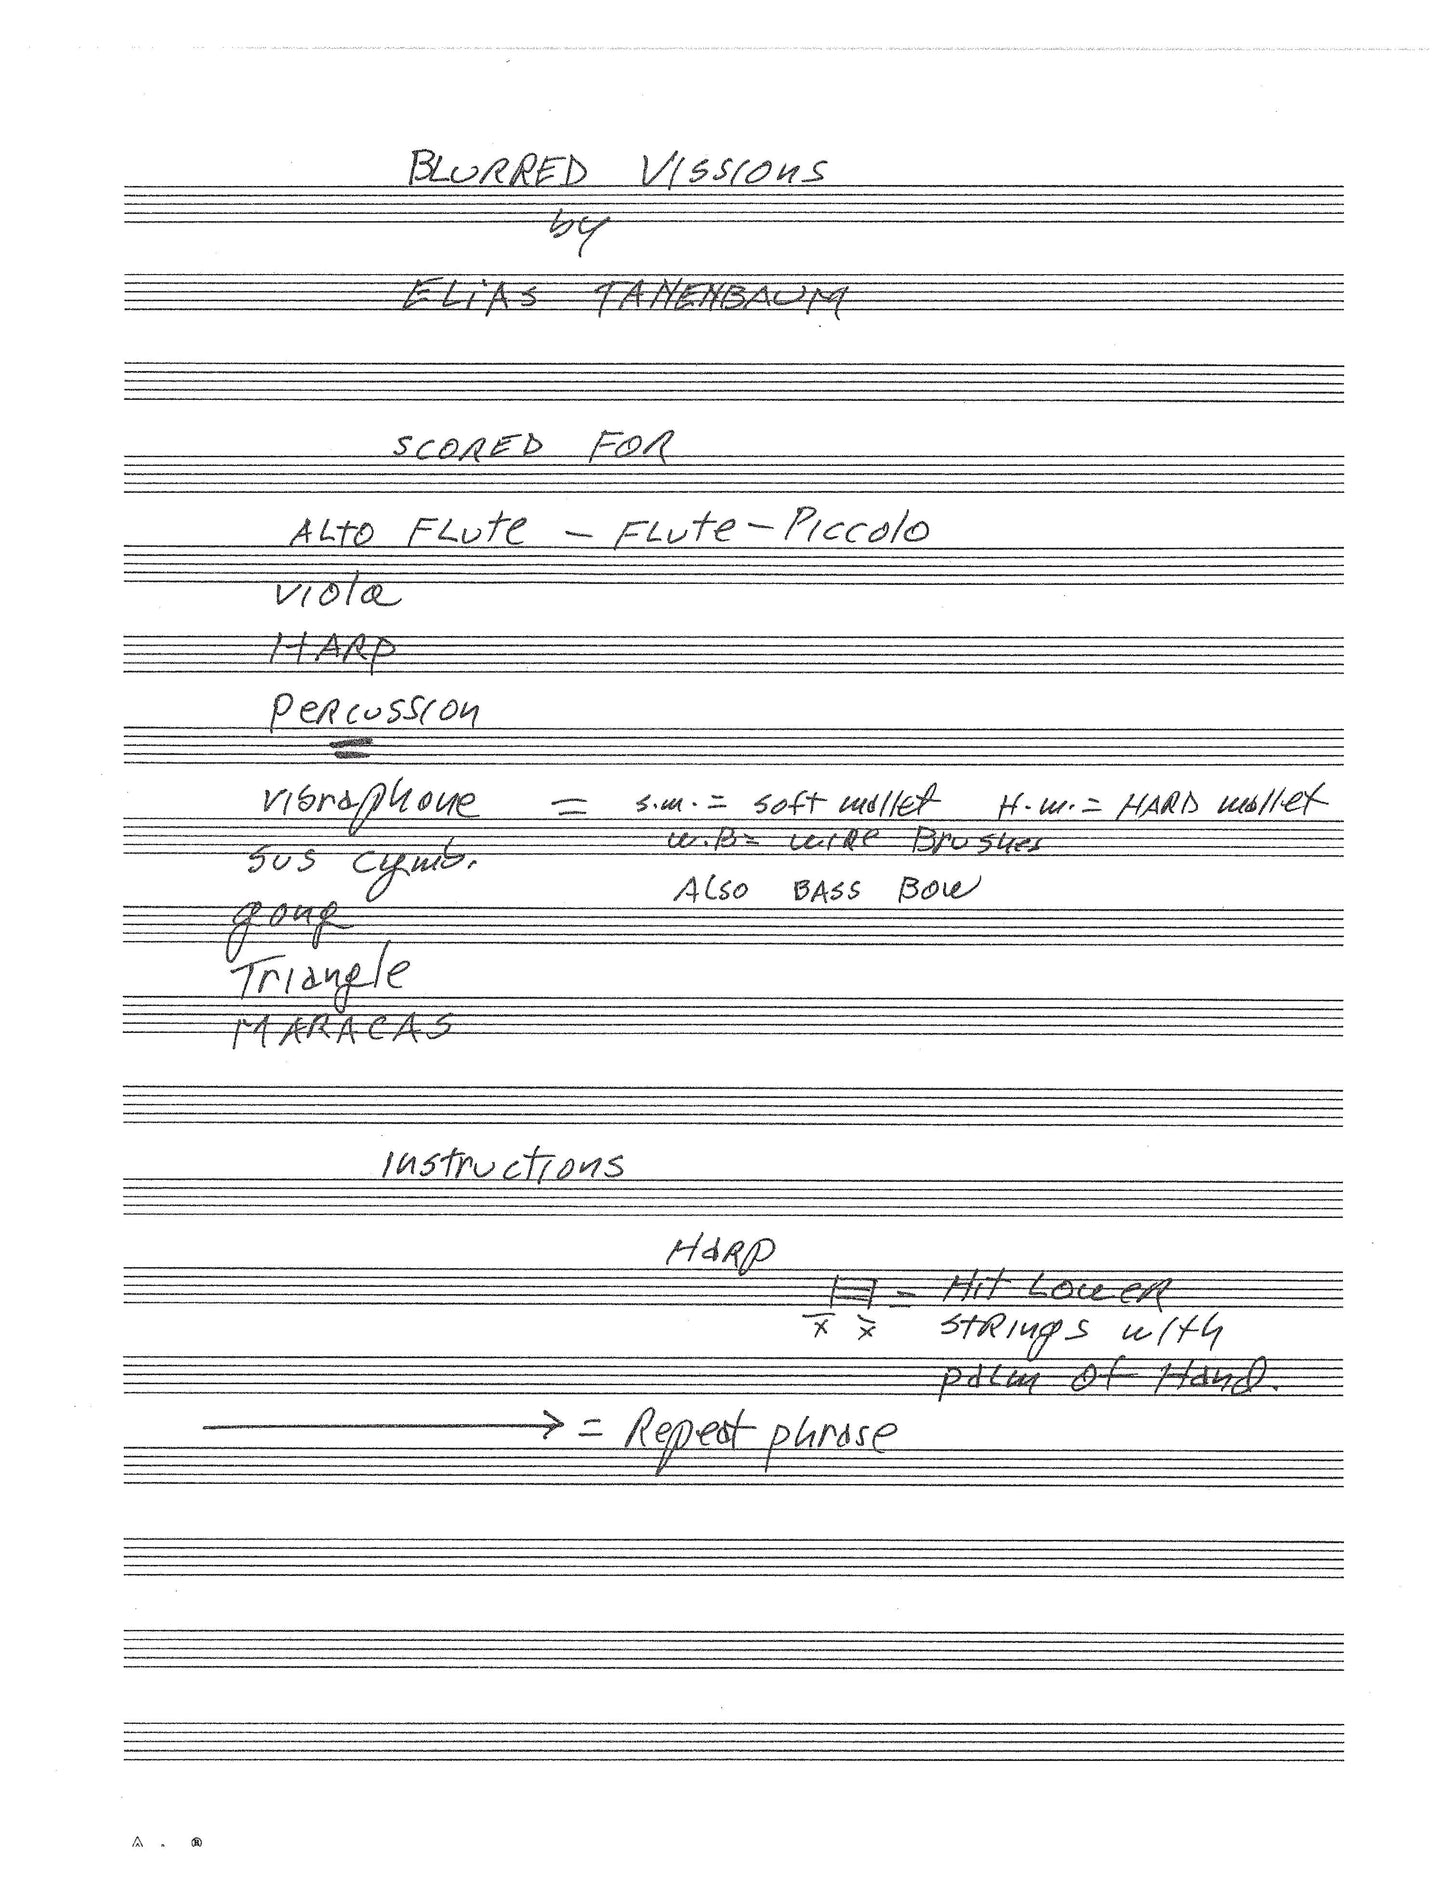 BLURRED VISSIONS
by
ELIAS TANENBAUM
SCORED FOR
ALTO FLUTE – FLUTE – PICCOLO
Viola
HARP
PERCUSSION
Vibraphone = s.m. = soft mallet H.m. = HARD mallet
sus cymb. w.B = wire Brushes
ALSO BASS BOW
gong
Triangle
MARACAS
Instructions
Harp
x x = Hit Lower
strings with
palm of Hand.
→ = Repeat phrase